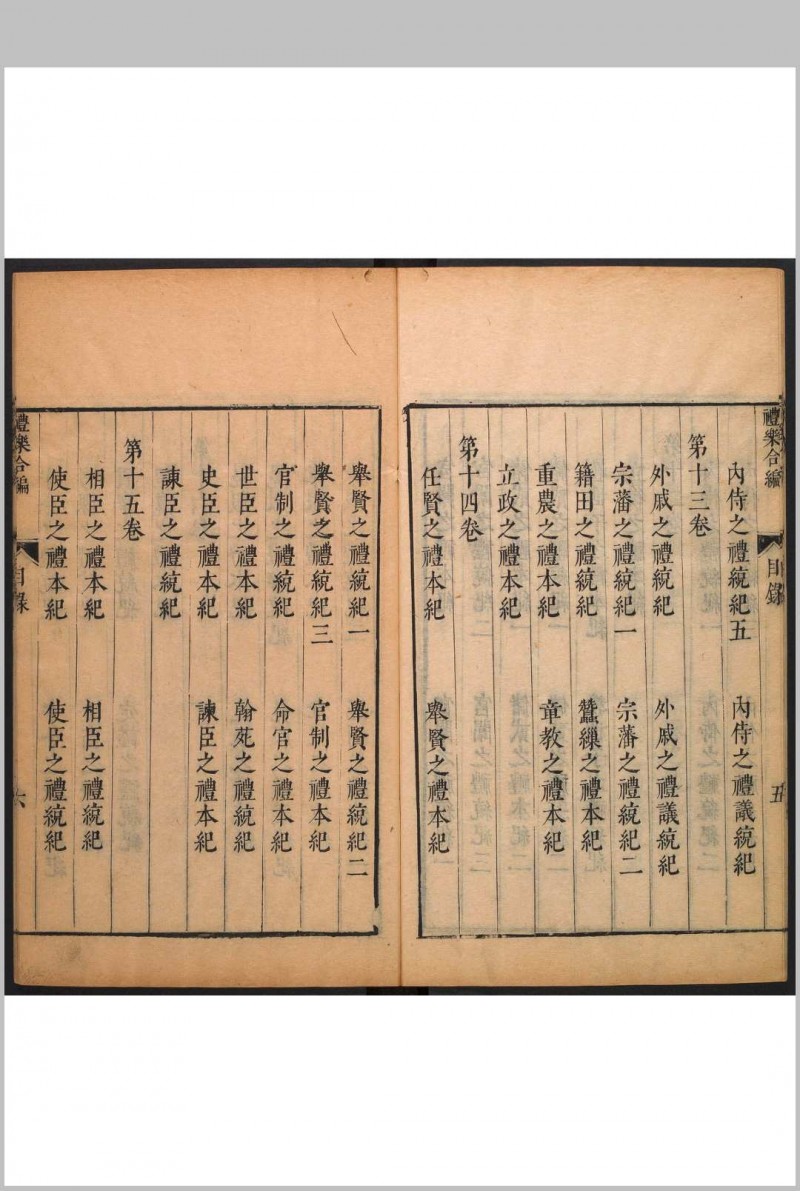 禮樂合編
目錄
五
內侍之禮統紀五 內侍之禮議統紀
第十三卷
外戚之禮統紀 外戚之禮議統紀
宗藩之禮統紀一 宗藩之禮統紀二
籍田之禮統紀 蠶繅之禮本紀
重農之禮本紀 章教之禮本紀
立政之禮本紀
第十四卷
任賢之禮本紀 舉賢之禮本紀
舉賢之禮統紀一 舉賢之禮統紀二
舉賢之禮統紀三 官制之禮本紀
官制之禮統紀 命官之禮統紀
世臣之禮本紀 翰苑之禮統紀
史臣之禮本紀 諫臣之禮本紀
諫臣之禮統紀
第十五卷
相臣之禮本紀 相臣之禮統紀
使臣之禮本紀 使臣之禮統紀
禮樂合編
目錄
六